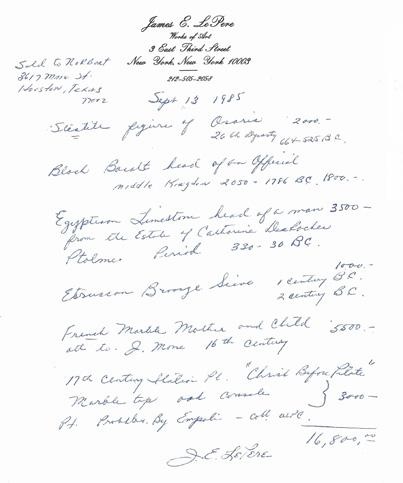 James E. LePere
Works of Art
3 East Third Street
New York, New York 10003
212-505-2058
Sold to
Houston, Texas
Sept 13 1985
Steatite figure of Osaris 2000.-
26th Dynasty 664-525 B.C.
Black Basalt head of an Official
middle Kingdom 2050 - 1786 BC. 1800.-
Egyptian Limestone head of a man 3500-
from the Estate of Catherine
Period 330-30 BC.
1000.-
Etruscan Bronze 1 century B.C.
2 century B.C.
French Marble Mother and Child 5500.-
att to J. Mone 16th Century
17th Century Italian Pt. "Christ Before Pilate"
Marble top oak console 3000-
Pt. Probably By Empoli -
16,800.00
J.E. LePere